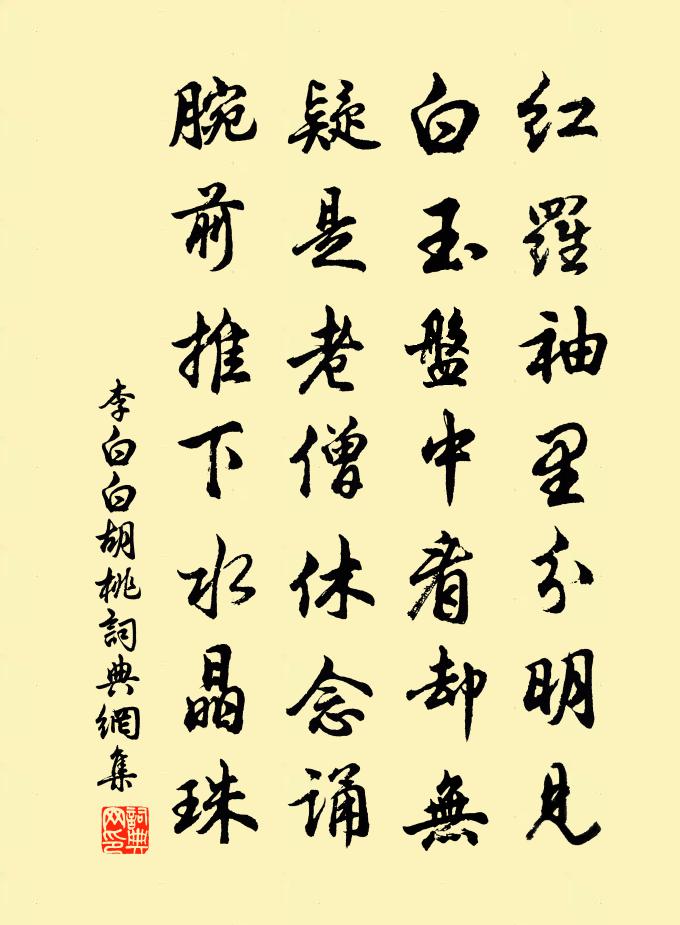 紅羅袖里分明見
白玉盤中看却無
疑是老僧休念誦
腕前推下水晶珠
李白白胡桃詞典網集
詞典网印